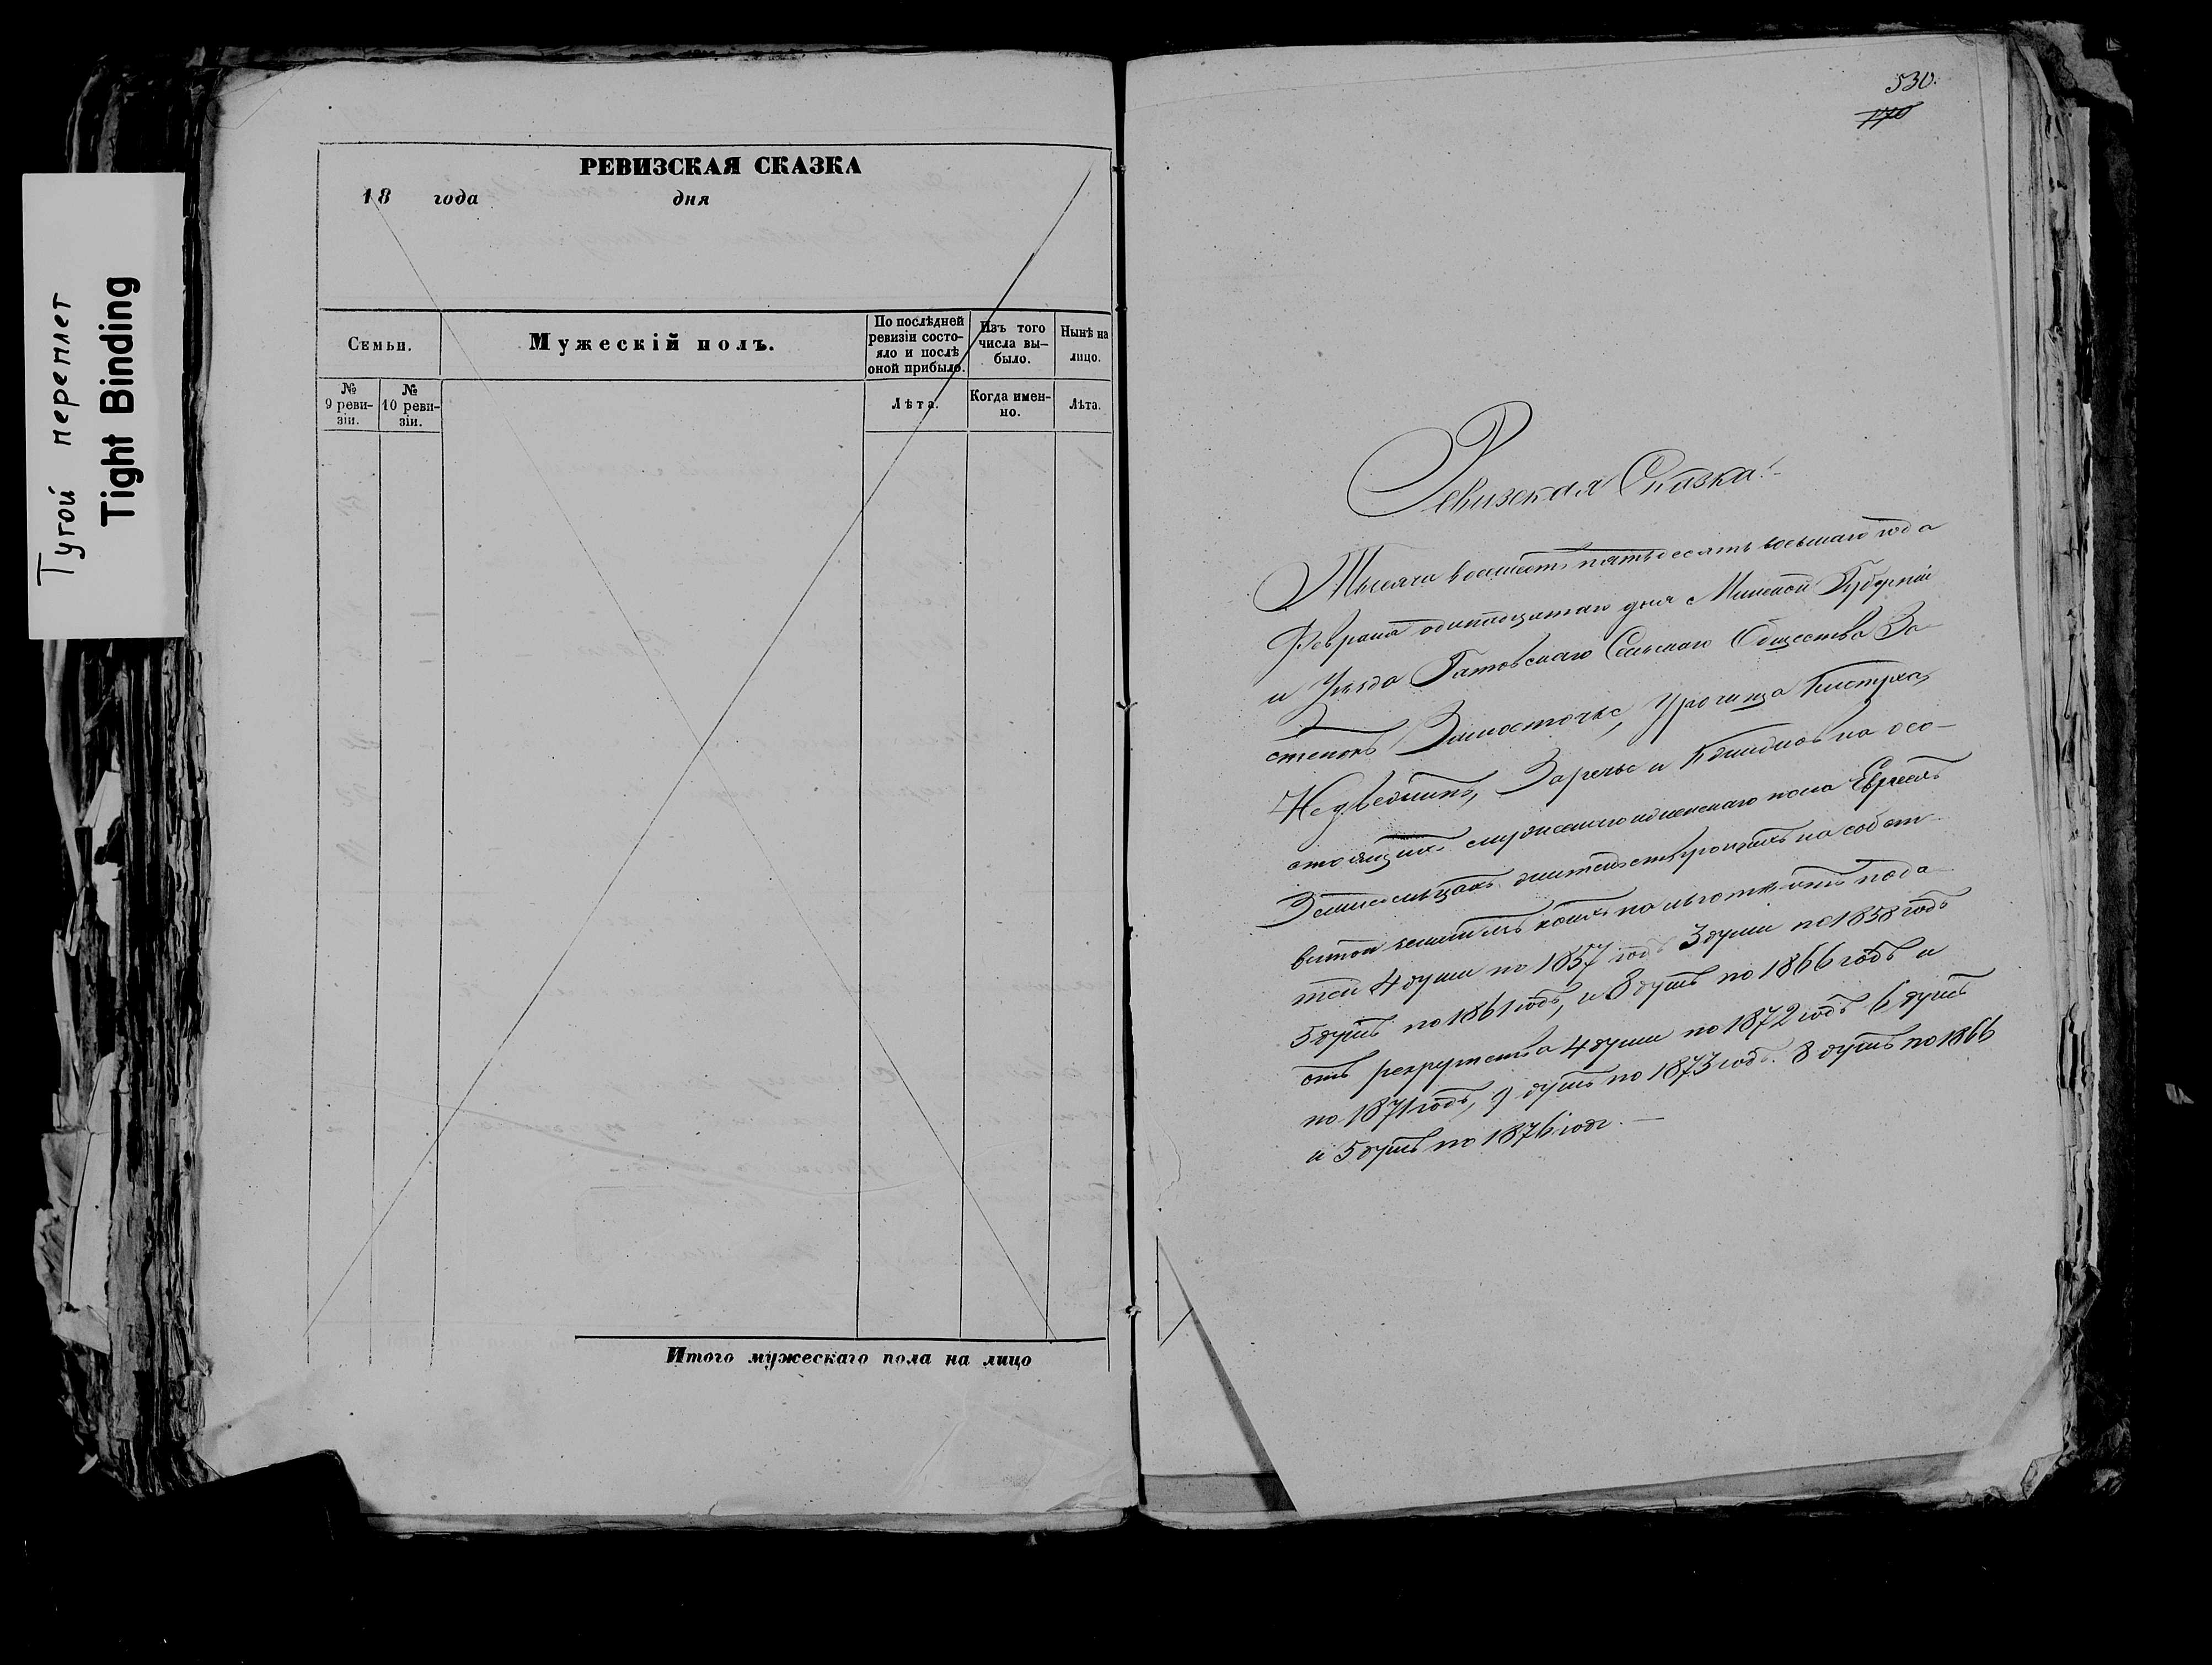 Тугой переплет
Tight Binding
РЕВИЗСКАЯ СКАЗКА
18 года дня
Семьи.
Мужескій полъ.
По послѣдней
ревизіи состо-
яло и послѣ
оной прибыло.
Изъ того
числа вы-
было.
Нынѣ на
лицо.
№
9 реви-
зіи.
№
10 реви-
зіи.
Лѣта.
Когда имен-
но.
Лѣта.
Итого мужескаго пола на лицо
530.
170
Ревизская Сказка
Тысяча восемсотъ пятьдесятъ восьмаго года
Февраля одинадцатаго дня Минской Губерніи
и Уѣзда Гатовскаго Сельскаго Общества За-
стенокъ Замосточье, Урочища
Заречье и на осо-
стоящихъ мужескаго и женскаго пола Евреевъ
Земледѣльцахъ на собст-
венной землѣ по льготѣ отъ пода-
тей 4 души по 1857 годъ 3 души по 1858 годъ
5 душъ по 1861 годъ, и 8 душъ по 1866 годъ и
отъ рекрутства 4 души по 1872 годъ 6 душъ
по 1871 годъ, 9 душъ по 1873 годъ. 8 душъ по 1866
и 5 душъ по 1876 годъ. —